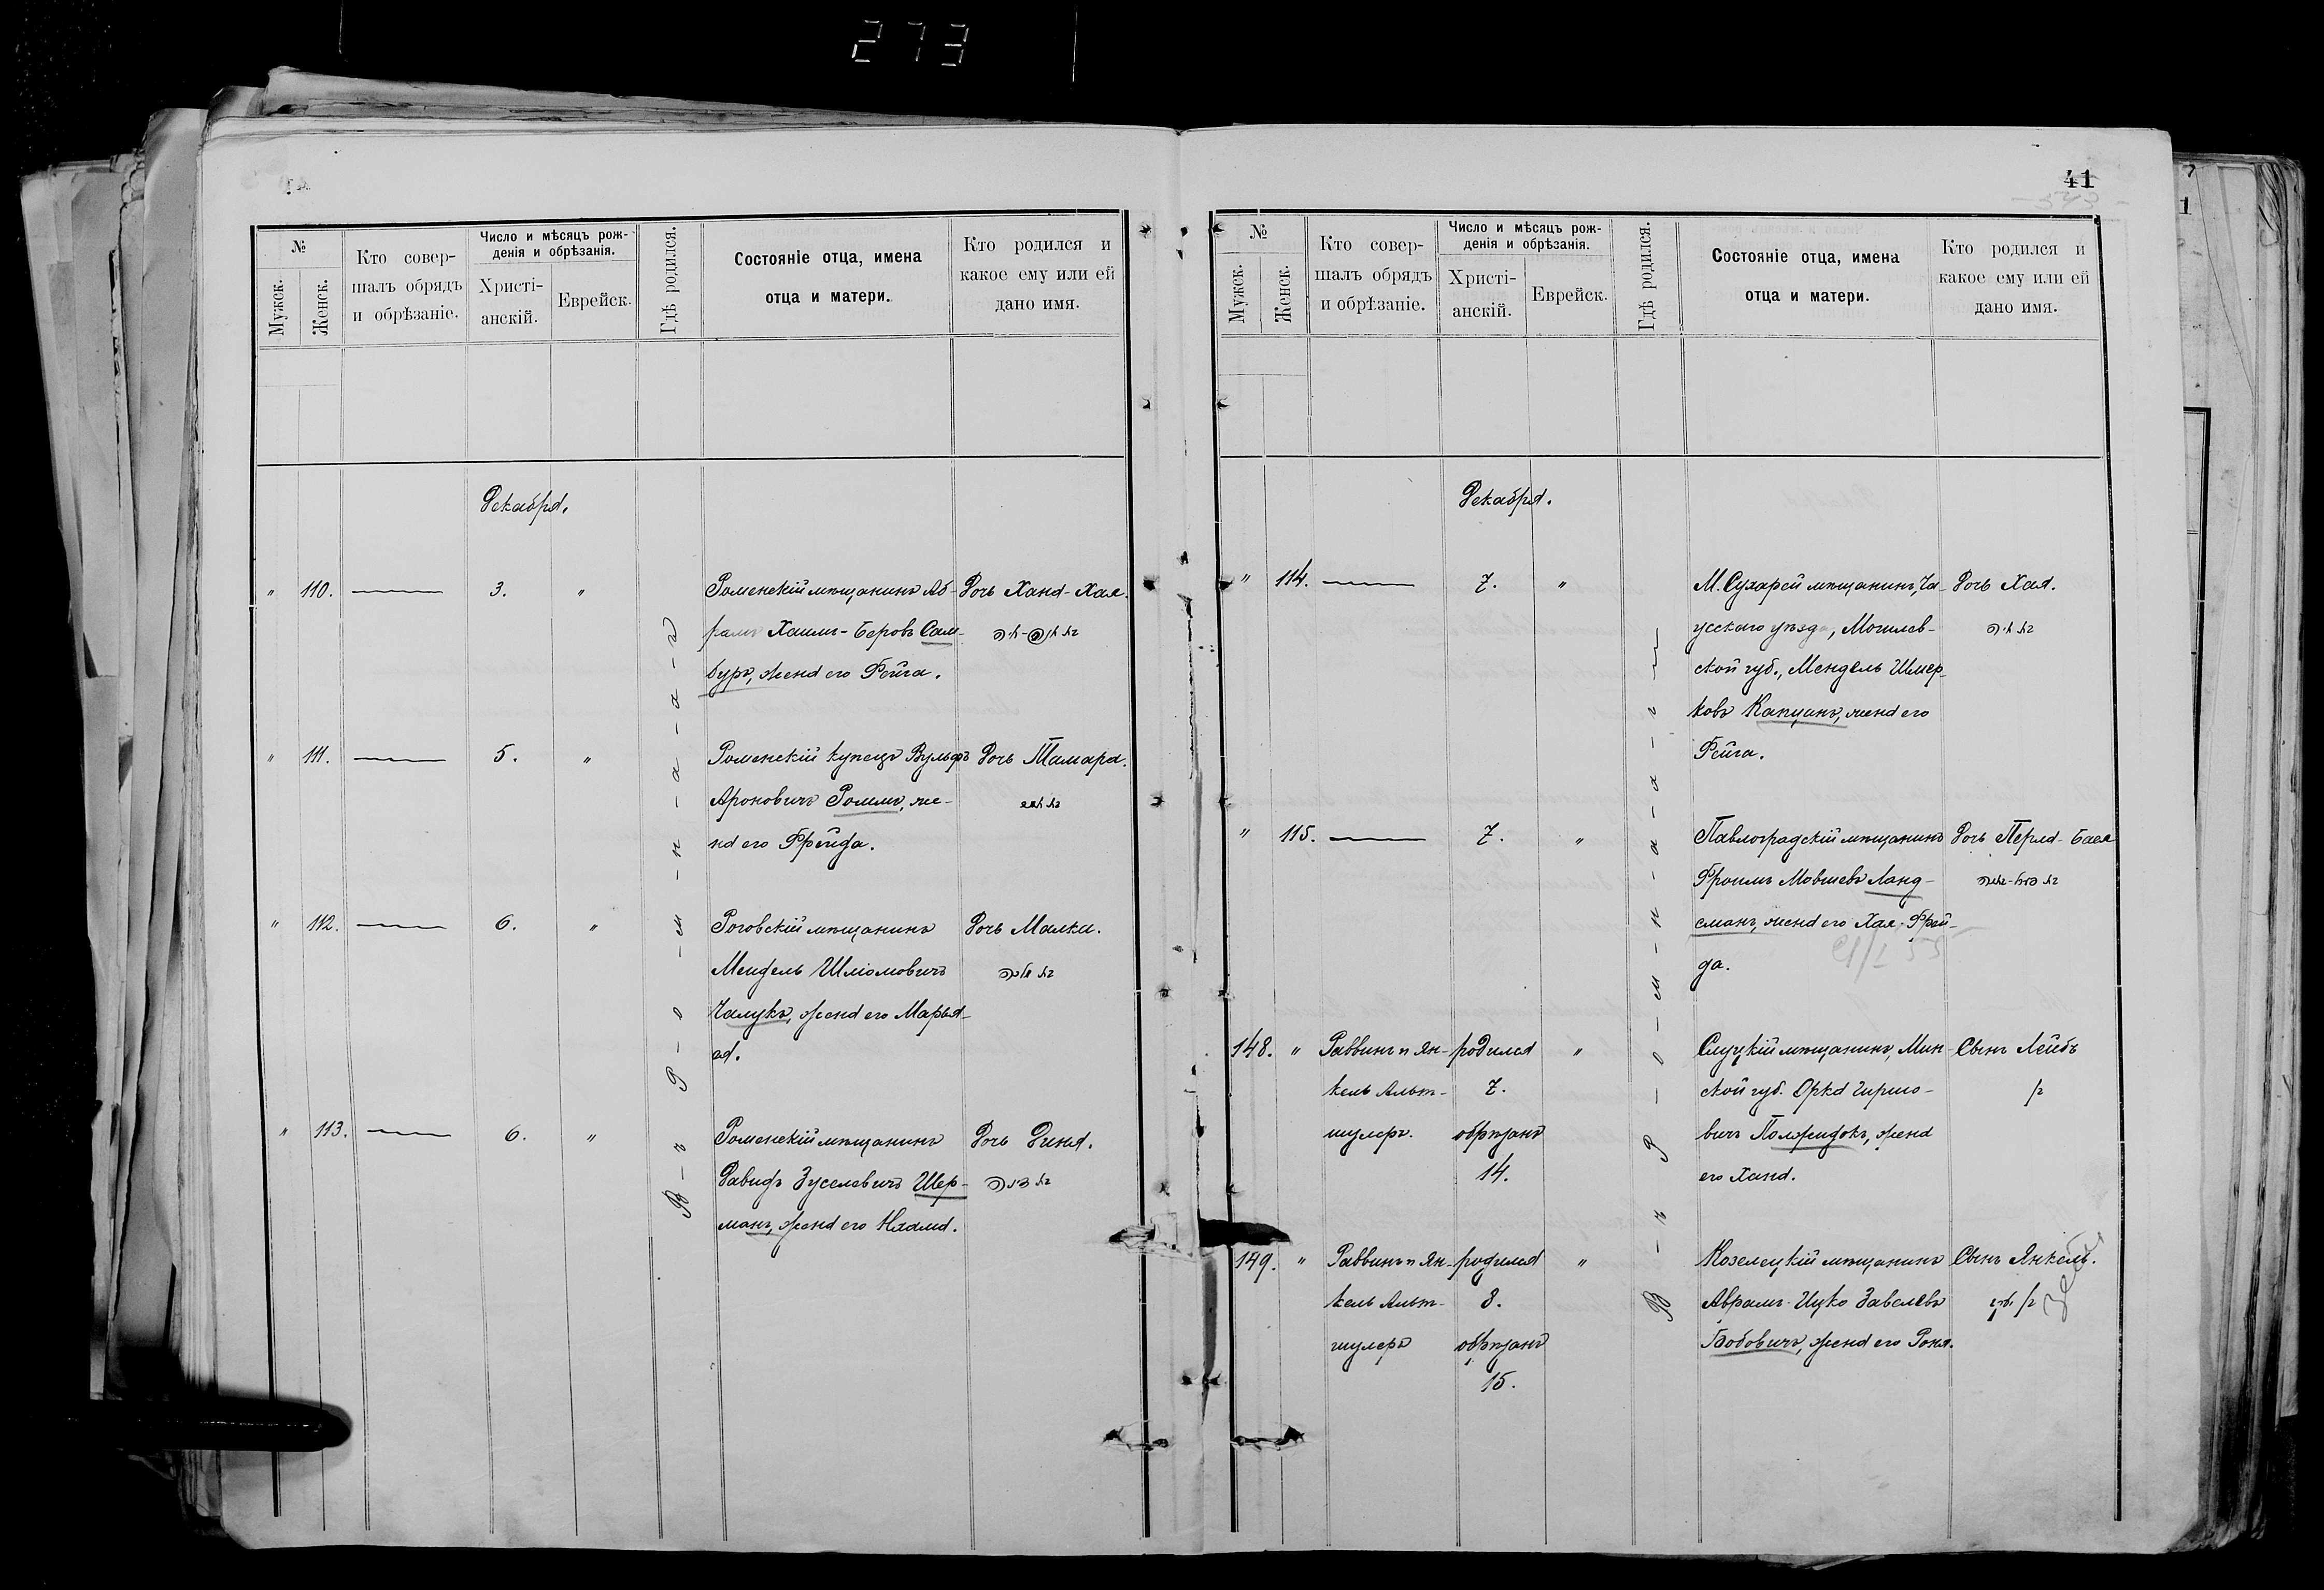 273
№
Мужск.
Женск.
Кто совер-
шалъ обрядъ
и обрѣзаніе.
Число и мѣсяцъ рож-
денія и обрѣзанія.
Христі-
анскій.
Еврейск.
Гдѣ родился.
Состояніе отца, имена
отца и матери.
Кто родился и
какое ему или ей
дано имя.
Декабря.
" 110. 3. "
Роменскій мѣщанинъ Аб-
рамъ Хаимъ-Беровъ Сам-
буръ, жена его Фейга.
Дочь Хана-Хая.
" 111. 5. "
Роменскій купецъ Вульфъ
Ароновичъ Роммъ, же-
на его Фрейда.
Дочь Тамара.
" 112. 6. "
Роговскій мѣщанинъ
Мендель Шліомовичъ
Чалукъ, жена его Марья-
ся.
Дочь Малка.
" 113. 6. "
Роменскій мѣщанинъ
Давидъ Зуселевичъ Шер-
манъ, жена его Нхама.
Дочь Дина.
41
№
Мужск.
Женск.
Кто совер-
шалъ обрядъ
и обрѣзаніе.
Число и мѣсяцъ рож-
денія и обрѣзанія.
Христі-
анскій.
Еврейск.
Гдѣ родился.
Состояніе отца, имена
отца и матери.
Кто родился и
какое ему или ей
дано имя.
Декабря.
" 114. 7. "
М. Сухарей мѣщанинъ, Ча-
усскаго уѣзда, Могилев-
ской губ., Мендель Шмер-
ковъ Капцанъ, жена его
Фейга.
Дочь Хая.
" 115. 7. "
Павлоградскій мѣщанинъ
Фроимъ Мовшевъ Ланд-
сманъ, жена его Хая-Фрей-
да.
Дочь Перла-Бася
148. "
Раввинъ и Ян-
кель Альт-
шулеръ.
родился
7.
обрѣзанъ
14.
"
Слуцкій мѣщанинъ, Мин-
ской губ. Орка Гиршо-
вичъ
жена
его Хана.
Сынъ Лейбъ
149. "
Раввинъ и Ян-
кель Альт-
шулеръ
родился
8.
обрѣзанъ
15.
"
Козелецкій мѣщанинъ
Абрамъ-Ицко Завелевъ
Бобовичъ, жена его Роня.
Сынъ Янкель.